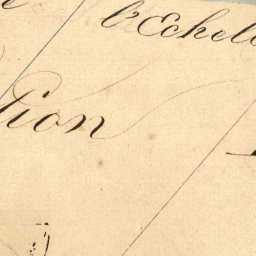 l'Echel
tion